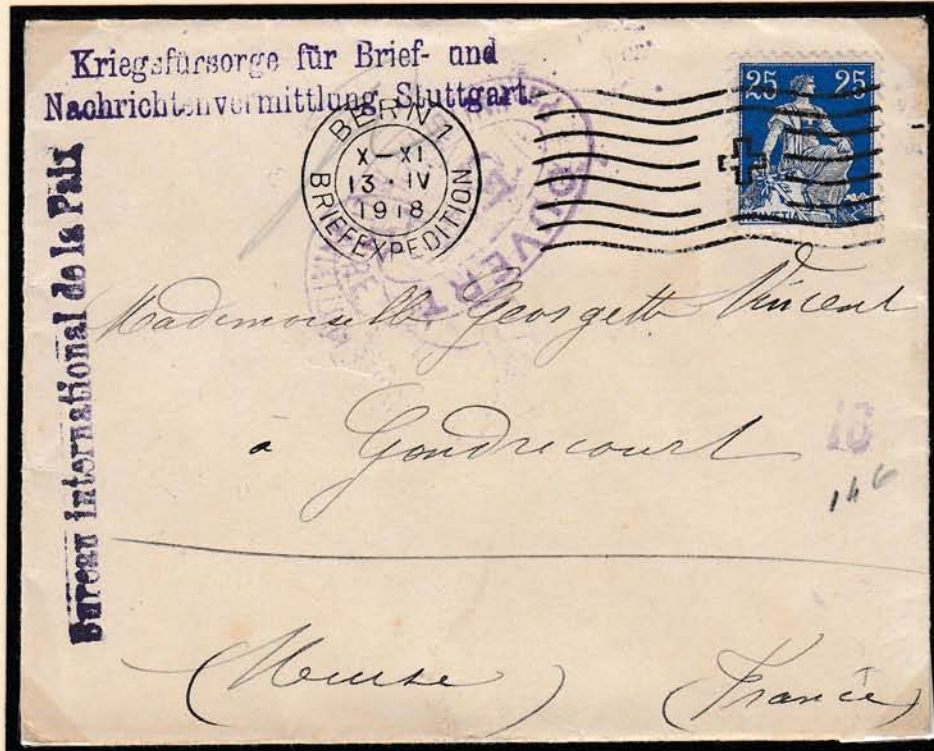 Kriegsfürsorge für Brief- und
Nachrichtenvermittlung Stuttgart.
Bureau international de la Paix
BERN 1
X–XI
13 · IV
1918
BRIEFEXPEDITION
25 25
HELVETIA
OUVERT
Mademoiselle Georgette Vincent
à Gondrecourt
18
146
(Meuse) (France)